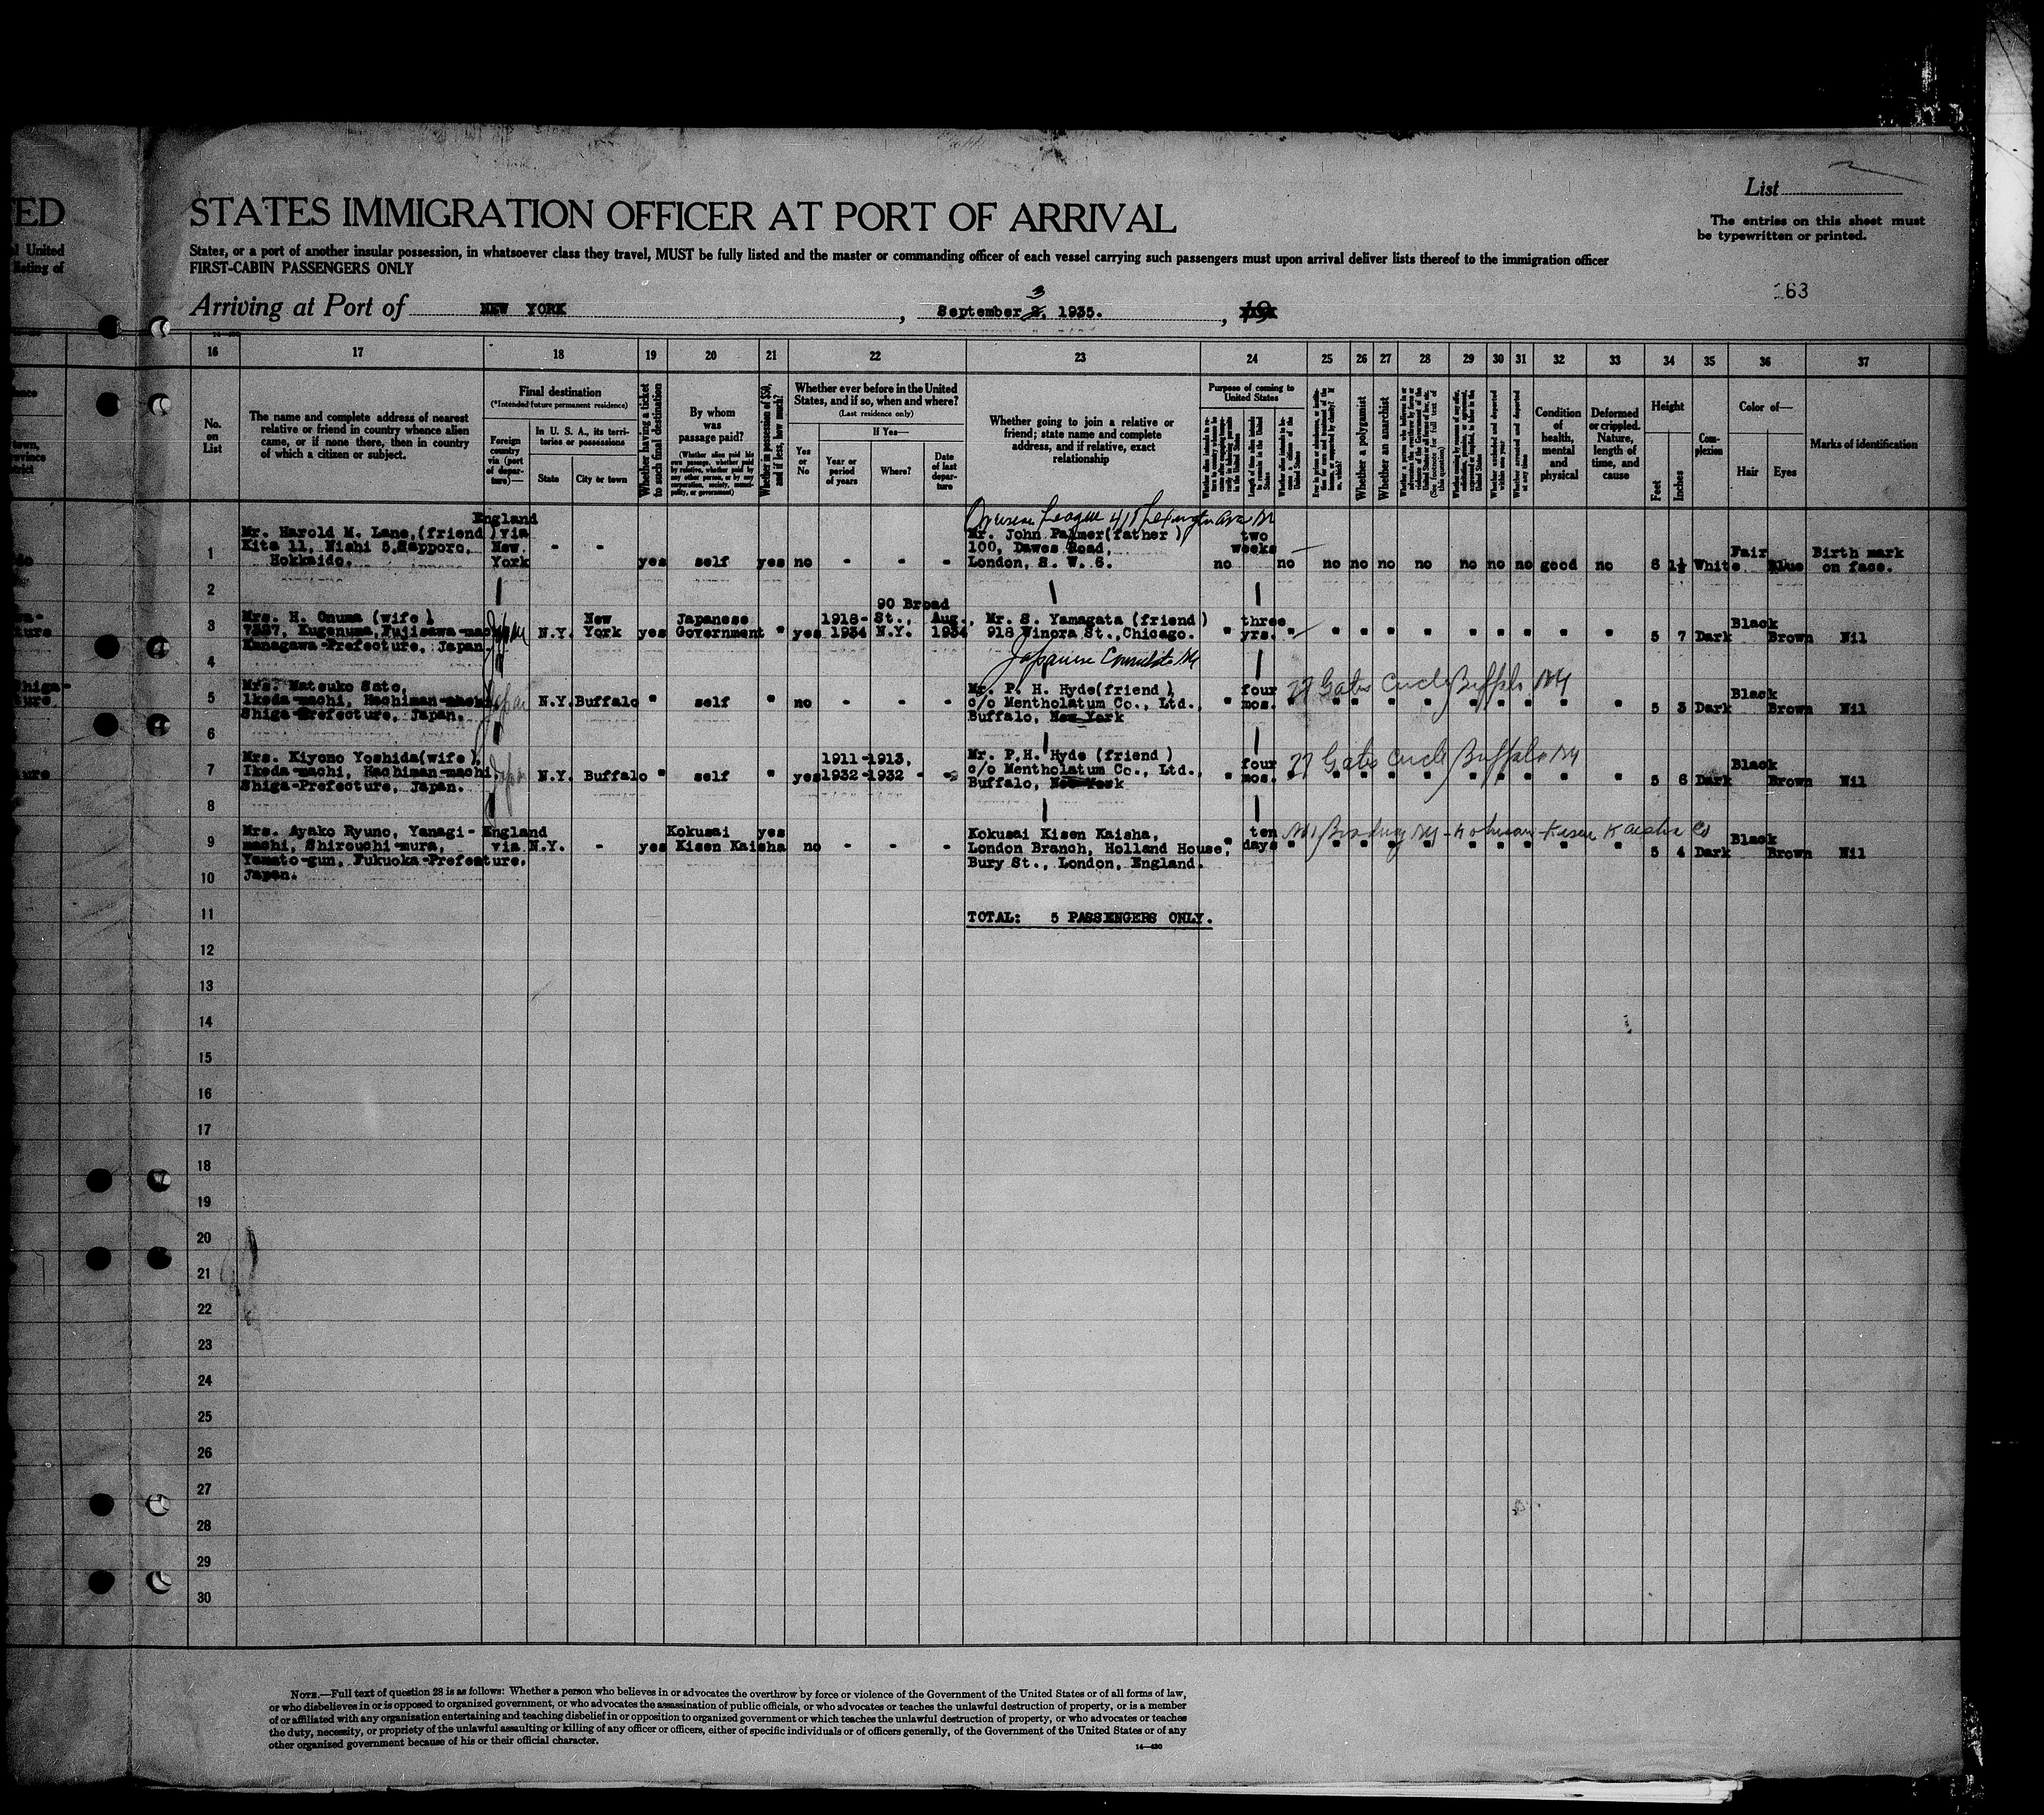 ED
List
STATES IMMIGRATION OFFICER AT PORT OF ARRIVAL
The entries on this sheet must
be typewritten or printed.
l United
listing of
States, or a port of another insular possession, in whatsoever class they travel, MUST be fully listed and the master or commanding officer of each vessel carrying such passengers must upon arrival deliver lists thereof to the immigration officer
FIRST-CABIN PASSENGERS ONLY
163
Arriving at Port of NEW YORK, September 3, 1935.
16 17 18 19 20 21 22 23 24 25 26 27 28 29 30 31 32 33 34 35 36 37
No. on List
The name and complete address of nearest
relative or friend in country whence alien
came, or if none there, then in country
of which a citizen or subject.
Final destination
(*Intended future permanent residence)
Foreign country via (port of departure)—
In U. S. A., its territories or possessions
State
City or town
Whether having ticket to such final destination
By whom was passage paid?
(Whether alien paid his own passage, whether paid by relative, whether paid by any other person, or by any corporation, society, municipality, or government)
Whether in possession of $50, and if less, how much?
Whether ever before in the United
States, and if so, when and where?
(Last residence only)
Yes or No
If Yes—
Year or period of years
Where?
Date of last departure
Whether going to join a relative or
friend; state name and complete
address, and if relative, exact
relationship
Purpose of coming to United States
Length of time alien intends to remain in the United States
Whether a polygamist
Whether an anarchist
(See footnote for full text of this question)
Condition of health, mental and physical
Deformed or crippled. Nature, length of time, and cause
Height
Feet
Inches
Complexion
Color of—
Hair
Eyes
Marks of identification
1
Mr. Harold M. Lane,(friend)
Kita 11, Nishi 5,Sapporo,
Hokkaido.
England
via
New
York
- -
yes self yes no - - -
League 415 Lexington Ave NY
Mr. John Palmer(father)
100, Dawes Road,
London, S. W. 6.
no two
weeks no no no no no no no no good no 6 1½ White Fair Blue Birth mark
on face.
2
3
Mrs. H. Onuma (wife)
7337, Kugenuma,Fujisawa-machi
Kanagawa-Prefecture, Japan.
Japan
N.Y. New
York yes Japanese
Government " yes 1918-
1934 90 Broad
St.,
N.Y. Aug.,
1934
Mr. S. Yamagata (friend)
918 Winora St.,Chicago.
Japanese Consulate NY
" three
yrs. " " " " " " " " " " " 5 7 Dark Black Brown Nil
4
5
Mrs. Natsuko Sato,
Ikeda-machi, Hachiman-machi
Shiga-Prefecture, Japan.
Japan
N.Y. Buffalo " self " no - - -
Mr. P. H. Hyde(friend)
c/o Mentholatum Co., Ltd.,
Buffalo, New York
" four
mos. 27 Gates Circle Buffalo NY
" " " " " " " " " " " 5 3 Dark Black Brown Nil
6
7
Mrs. Kiyono Yoshida(wife),
Ikeda-machi, Hachiman-machi,
Shiga-Prefecture, Japan.
Japan
N.Y. Buffalo " self " yes 1911-1913,
1932-1932 - -
Mr. P.H. Hyde (friend)
c/o Mentholatum Co., Ltd.,
Buffalo, New York
" four
mos. 27 Gates Circle Buffalo NY
" " " " " " " " " " " 5 6 Dark Black Brown Nil
8
9
Mrs. Ayako Ryuno, Yanagi-
machi, Shirouchi-mura,
Yamato-gun, Fukuoka-Prefecture.
Japan.
England
via N.Y. - yes Kokusai
Kisen Kaisha yes no - - -
Kokusai Kisen Kaisha,
London Branch, Holland House,
Bury St., London, England.
" ten
days Broadway NY Kisen Kaisha Co
" " " " " " " " " " " 5 4 Dark Black Brown Nil
10
11
TOTAL: 5 PASSENGERS ONLY.
12
13
14
15
16
17
18
19
20
21
22
23
24
25
26
27
28
29
30
NOTE.—Full text of question 28 is as follows: Whether a person who believes in or advocates the overthrow by force or violence of the Government of the United States or of all forms of law,
or who disbelieves in or is opposed to organized government, or who advocates the assassination of public officials, or who advocates or teaches the unlawful destruction of property, or is a member
of or affiliated with any organization entertaining and teaching disbelief in or opposition to organized government or which teaches the unlawful destruction of property, or who advocates or teaches
the duty, necessity, or propriety of the unlawful assaulting or killing of any officer or officers, either of specific individuals or of officers generally, of the Government of the United States or of any
other organized government because of his or their official character.
14—430